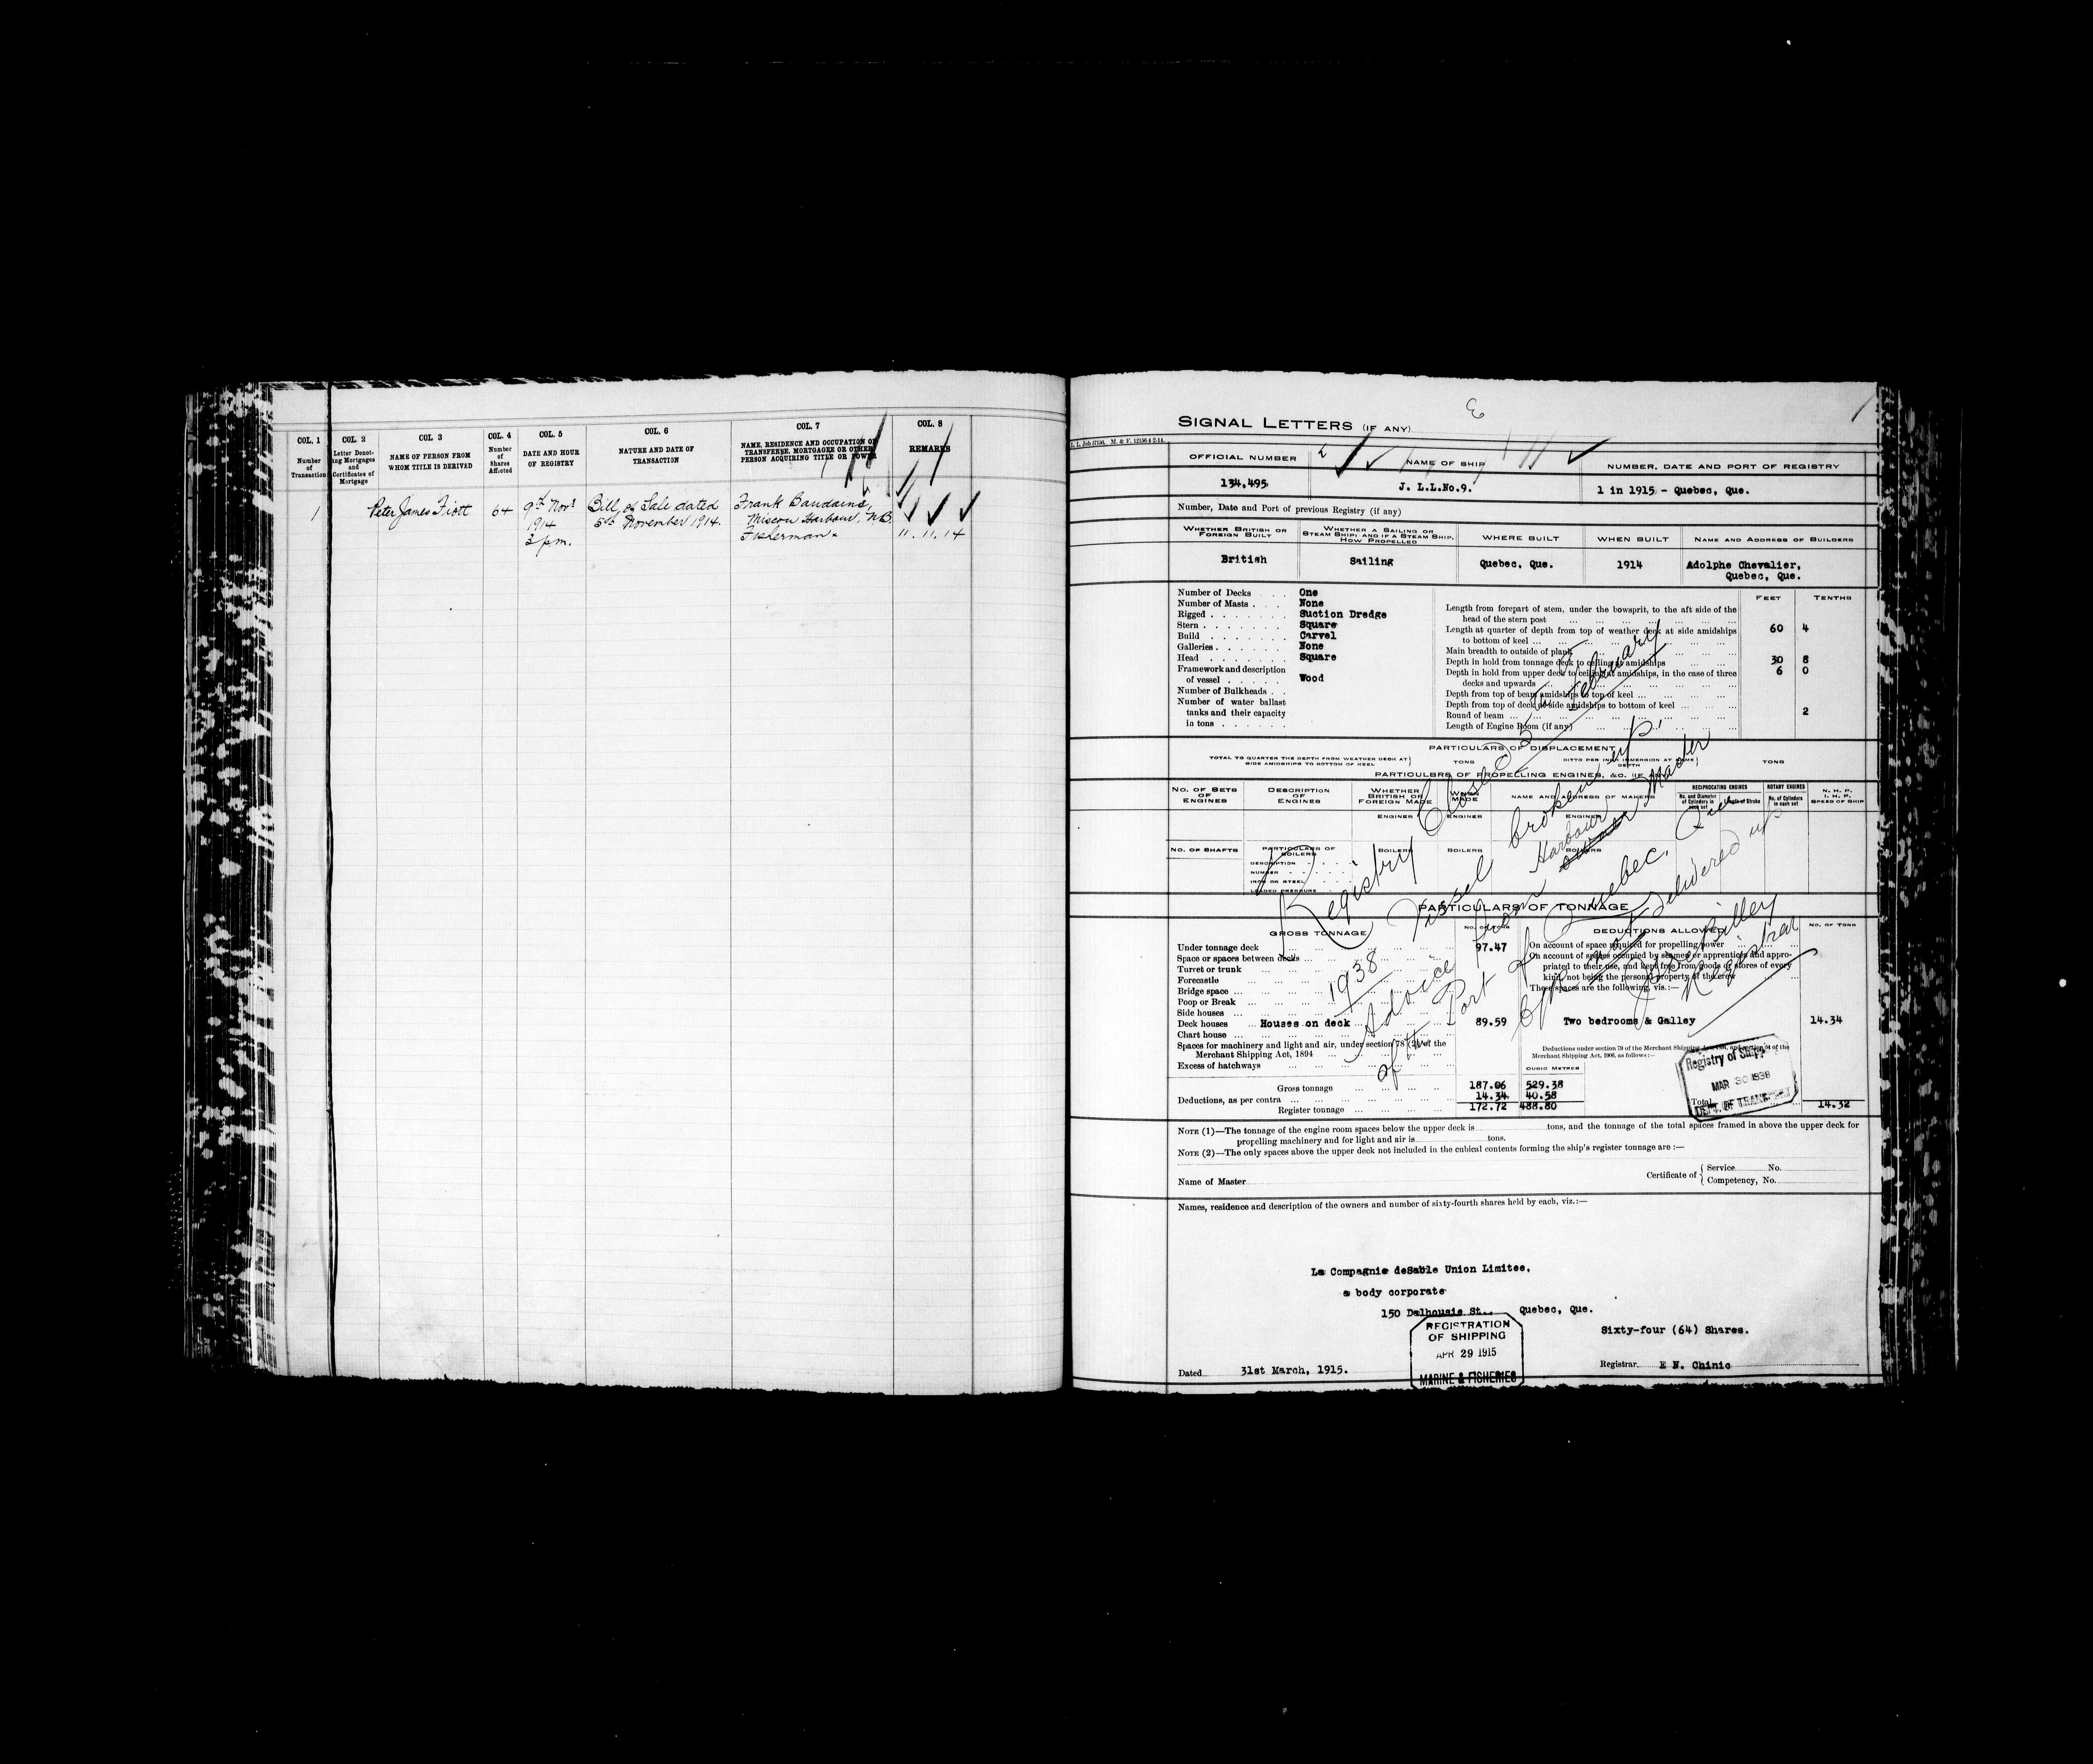 COL. 1
Number
of
Transaction
COL. 2
Letter Denot-
ing Mortgages
and
Certificates of
Mortgage
COL. 3
NAME OF PERSON FROM
WHOM TITLE IS DERIVED
COL. 4
Number
of
Shares
Affected
COL. 5
DATE AND HOUR
OF REGISTRY
COL. 6
NATURE AND DATE OF
TRANSACTION
COL. 7
NAME, RESIDENCE AND OCCUPATION OF
TRANSFEREE, MORTGAGEE OR OTHER
PERSON ACQUIRING TITLE OR POWER
COL. 8
REMARKS
1
Peter James Fiott
64
9th Novr
1914
3 pm.
Bill of Sale dated
5th November 1914.
Frank Baudains,
Miscou Harbour, N.B.
Fisherman.
11.11.14
SIGNAL LETTERS (IF ANY)
OFFICIAL NUMBER
NAME OF SHIP
NUMBER, DATE AND PORT OF REGISTRY
134,495.
J. L.L.No.9.
1 in 1915 - Quebec, Que.
Number, Date and Port of previous Registry (if any)
WHETHER BRITISH OR
FOREIGN BUILT
WHETHER A SAILING OR
STEAM SHIP; AND IF A STEAM SHIP,
HOW PROPELLED
WHERE BUILT
WHEN BUILT
NAME AND ADDRESS OF BUILDERS
British
Sailing
Quebec, Que.
1914
Adolphe Chevalier,
Quebec, Que.
Number of Decks . . . One
Number of Masts . . . None
Rigged . . . . . . . Suction Dredge
Stern . . . . . . . . Square
Build . . . . . . . Carvel
Galleries . . . . . . None
Head . . . . . . . Square
Framework and description
of vessel . . . . . . Wood
Number of Bulkheads . .
Number of water ballast
tanks and their capacity
in tons . . . . . . .
FEET
TENTHS
Length from forepart of stem, under the bowsprit, to the aft side of the
head of the stern post
Length at quarter of depth from top of weather deck at side amidships
to bottom of keel ...
60 4
Main breadth to outside of plank
30 8
Depth in hold from tonnage deck to ceiling at amidships
6 0
Depth in hold from upper deck to ceiling at amidships, in the case of three
decks and upwards
Depth from top of beam amidships to top of keel ...
Depth from top of deck at side amidships to bottom of keel ...
Round of beam ...
2
Length of Engine Room (if any)
PARTICULARS OF DISPLACEMENT
TOTAL TO QUARTER THE DEPTH FROM WEATHER DECK AT
SIDE AMIDSHIPS TO BOTTOM OF KEEL
TONS
DITTO PER INCH IMMERSION AT SAME
DEPTH
TONS
PARTICULARS OF PROPELLING ENGINES, &C. (IF ANY)
NO. OF SETS
OF
ENGINES
DESCRIPTION
OF
ENGINES
WHETHER
BRITISH OR
FOREIGN MADE
WHEN
MADE
NAME AND ADDRESS OF MAKERS
RECIPROCATING ENGINES
No. and Diameter
of Cylinders in
each set
Length of Stroke
ROTARY ENGINES
No. of Cylinders
in each set
N. H. P.
I. H. P.
SPEED OF SHIP
ENGINES
ENGINES
ENGINES
NO. OF SHAFTS
PARTICULARS OF
BOILERS
BOILERS
BOILERS
BOILERS
DESCRIPTION
NUMBER
IRON OR STEEL
LOADED PRESSURE
PARTICULARS OF TONNAGE
GROSS TONNAGE
NO. OF TONS
DEDUCTIONS ALLOWED
NO. OF TONS
Under tonnage deck 97.47
Space or spaces between decks ...
Turret or trunk
Forecastle
Bridge space ...
Poop or Break
Side houses ...
Deck houses ... Houses on deck 89.59
Chart house ...
Spaces for machinery and light and air, under section 78 (2) of the
Merchant Shipping Act, 1894
Excess of hatchways
Gross tonnage 187.06 529.38
Deductions, as per contra 14.34 40.58
Register tonnage 172.72 488.80
CUBIC METRES
On account of space required for propelling power
On account of spaces occupied by seamen or apprentices and appro-
priated to their use, and kept free from goods or stores of every
kind, not being the personal property of the crew
These spaces are the following, viz.:—
Two bedrooms & Galley 14.34
Deductions under section 79 of the Merchant Shipping Act, 1894, and section 54 of the
Merchant Shipping Act, 1906, as follows:—
Total 14.32
Registry Closed 3 February
1938 Vessel broken up.
Advice from Harbour Master
of the Port of Quebec, Que
C/R not delivered up
Registrar
Registry of Shipp
MAR 30 1938
DEPT. OF TRANSPORT
NOTE (1)—The tonnage of the engine room spaces below the upper deck is tons, and the tonnage of the total spaces framed in above the upper deck for
propelling machinery and for light and air is tons.
NOTE (2)—The only spaces above the upper deck not included in the cubical contents forming the ship's register tonnage are :—
Name of Master
Certificate of { Service No.
Competency, No.
Names, residence and description of the owners and number of sixty-fourth shares held by each, viz.:—
La Compagnie deSable Union Limitee,
a body corporate
150 Dalhousie St., Quebec, Que.
Sixty-four (64) Shares.
REGISTRATION
OF SHIPPING
APR 29 1915
MARINE & FISHERIES
Dated 31st March, 1915.
Registrar E N. Chinic